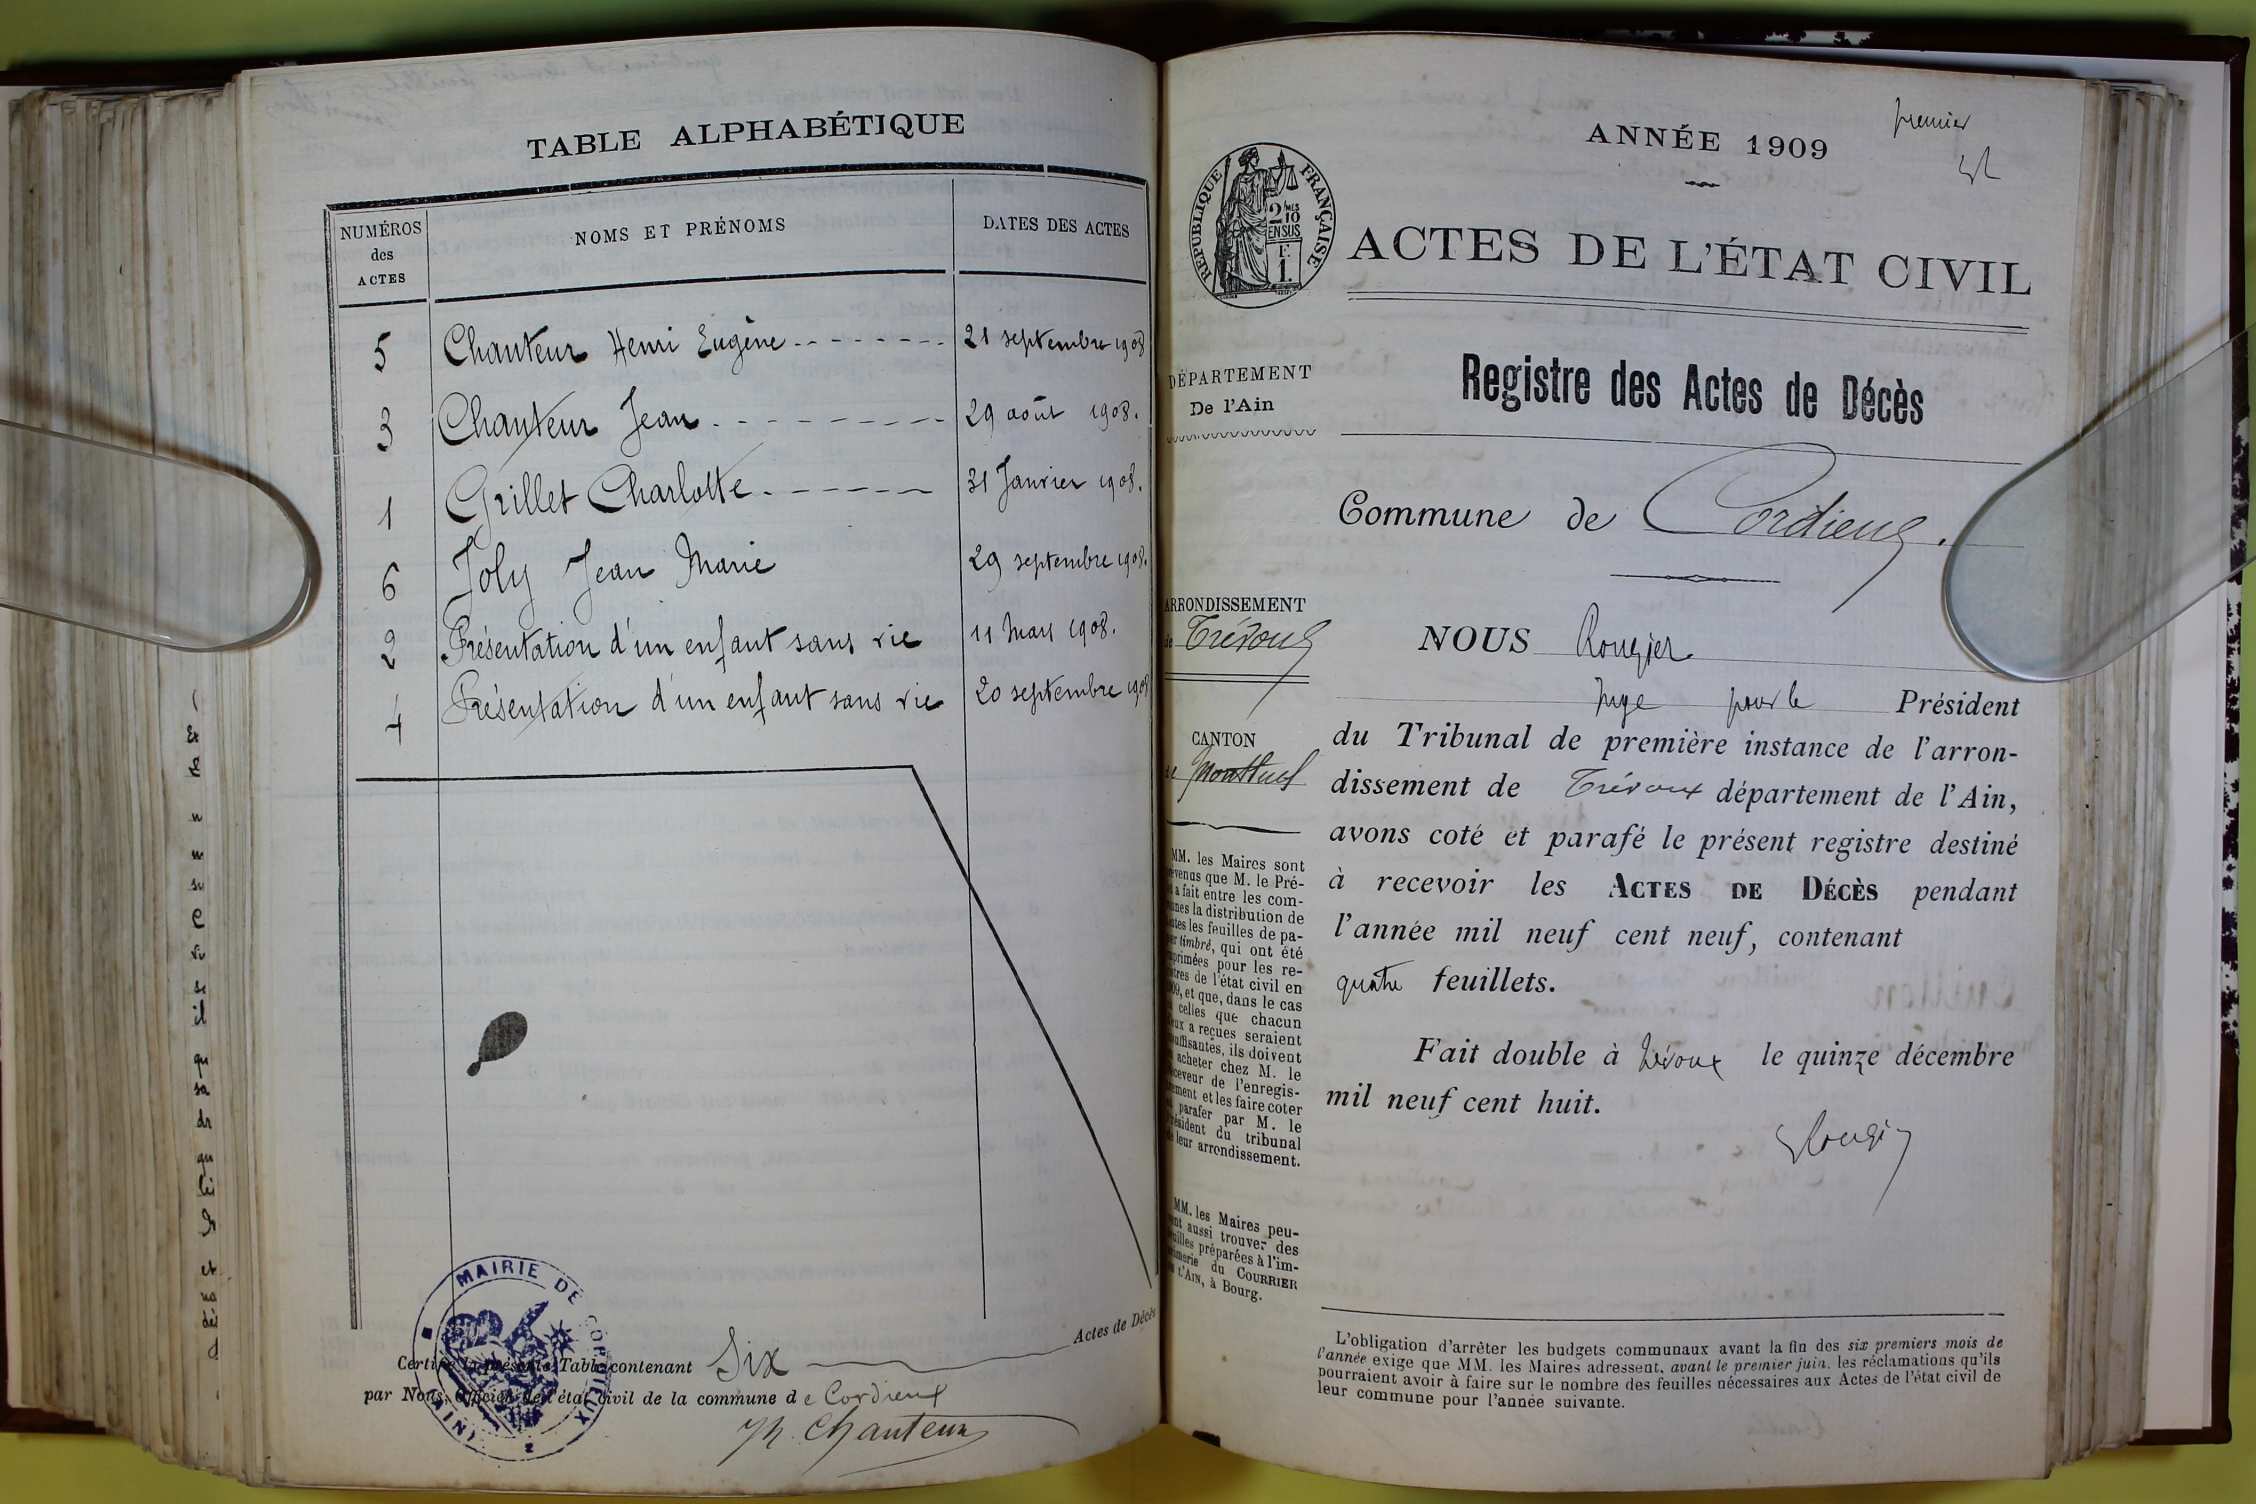 TABLE ALPHABÉTIQUE
NUMÉROS des ACTES
NOMS ET PRÉNOMS
DATES DES ACTES
5 Chanteur Henri Eugène 21 septembre 1908
3 Chanteur Jean 29 août 1908.
1 Grillet Charlotte 31 Janvier 1908.
6 Joly Jean Marie 29 septembre 1908.
2 Présentation d'un enfant sans vie 11 Mars 1908.
4 Présentation d'un enfant sans vie 20 septembre 1908
Certifié la présente Table contenant Six Actes de Décès
par Nous, Officier de l'état civil de la commune de Cordieux
MAIRIE DE CORDIEUX (AIN)
Chanteur
premier
ANNÉE 1909
RÉPUBLIQUE FRANÇAISE
2 10 mes
EN SUS
1 F.
ACTES DE L'ÉTAT CIVIL
Registre des Actes de Décès
DÉPARTEMENT
De l'Ain
Commune de Cordieux.
ARRONDISSEMENT
de Trévoux
CANTON
de Montluel
NOUS Rougier
Juge pour le Président
du Tribunal de première instance de l'arron-
dissement de Trévoux département de l'Ain,
avons coté et parafé le présent registre destiné
à recevoir les ACTES DE DÉCÈS pendant
l'année mil neuf cent neuf, contenant
quatre feuillets.
Fait double à Trévoux le quinze décembre
mil neuf cent huit.
Rougier
MM. les Maires sont
evenus que M. le Pré-
a fait entre les com-
unes la distribution de
utes les feuilles de pa-
er timbré, qui ont été
primées pour les re-
stres de l'état civil en
09, et que, dans le cas
celles que chacun
eux a reçues seraient
suffisantes, ils doivent
acheter chez M. le
eceveur de l'enregis-
ement et les faire coter
parafer par M. le
résident du tribunal
e leur arrondissement.
MM. les Maires peu-
ent aussi trouver des
uilles préparées à l'im-
rimerie du COURRIER
l'AIN, à Bourg.
L'obligation d'arrêter les budgets communaux avant la fin des six premiers mois de
l'année exige que MM. les Maires adressent, avant le premier juin, les réclamations qu'ils
pourraient avoir à faire sur le nombre des feuilles nécessaires aux Actes de l'état civil de
leur commune pour l'année suivante.